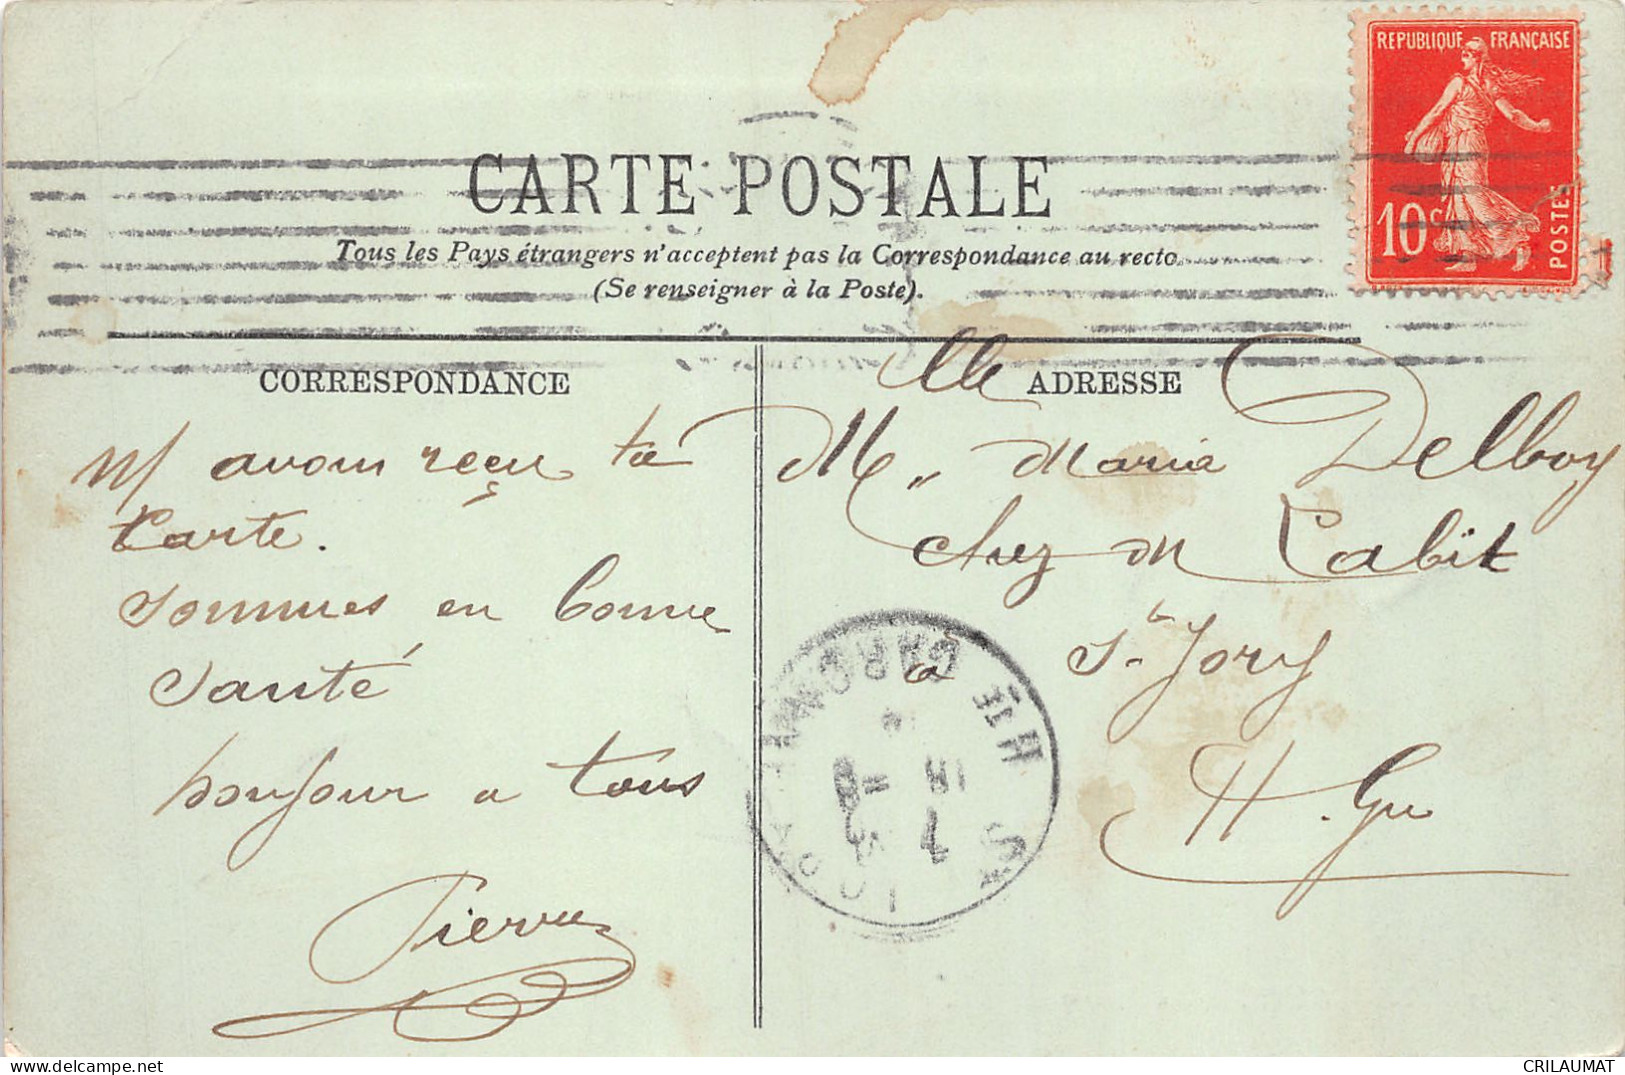 REPUBLIQUE FRANÇAISE
10 c
POSTES
CARTE POSTALE
Tous les Pays étrangers n'acceptent pas la Correspondance au recto
(Se renseigner à la Poste).
CORRESPONDANCE
avons reçu ta
Carte.
Sommes en bonne
Santé
bonjour a tous
Pierre
ADRESSE
Mlle Maria Delboy
chez M Cabit
à St Jory
H. Gne
HTE GARONNE
ST JORY
CRILAUMAT